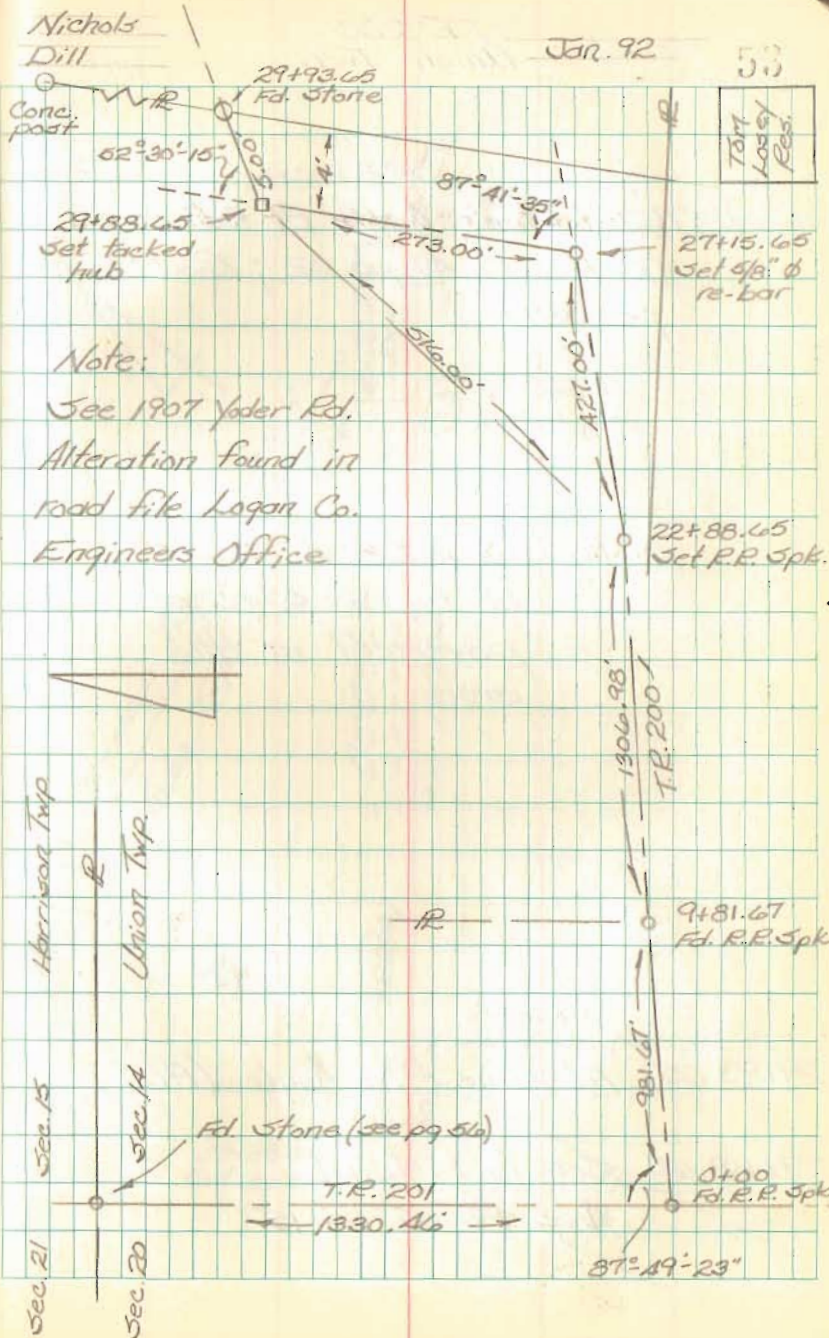 Nichols
Dill
Jan. 92
53
Conc.
post
29+93.65
Fd. Stone
Tom
Losey
Res.
PL
PL
62°-30'-15"
5.00'
4'
87°-41'-35"
29+88.65
Set tacked
hub
273.00'
27+15.65
Set 5/8" ϕ
re-bar
516.00'
427.00'
Note:
See 1907 Yoder Rd.
Alteration found in
road file Logan Co.
Engineers Office
22+88.65
Set R.R. Spk.
1306.98'
T.R. 200
Harrison Twp
PL
Union Twp.
PL
9+81.67
Fd. R.R. Spk
981.67'
Sec. 15
Sec. 14
Fd. Stone (see pg 56)
T.R. 201
1330.46'
0+00
Fd. R.R. Spk
87°-49'-23"
Sec. 21
Sec. 20